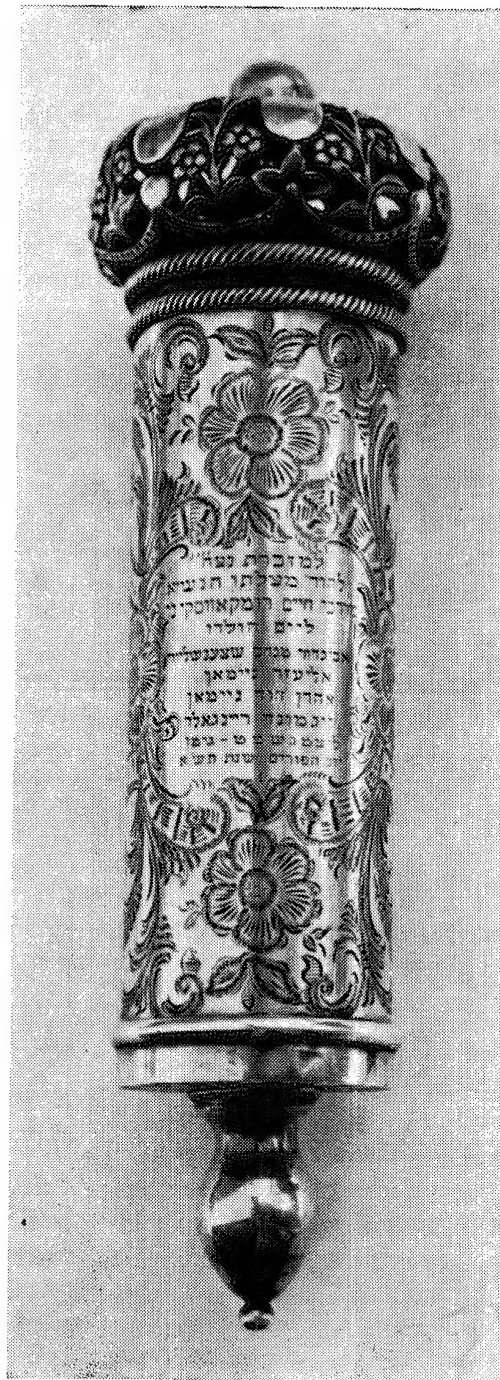 למזכרת נצח
להוד מעלתו הנשיא
מרדכי חיים רומקאווסקי
ליום הולדו
אליעזר ניימאן
אהרן דוד ניימאן
ריינגאלד
גיטו
הפורים שנת תש״א